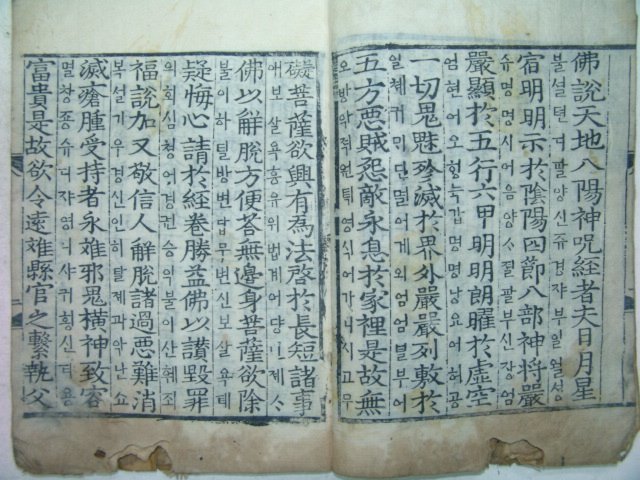 佛說天地八陽神呪經者夫日月星
불셜텬디팔양신쥬경쟈부일월셩
宿明明示於陰陽四節八部神將嚴
슈명명시어음양ᄉ졀팔부신쟝엄
嚴顯於五行六甲明明朗曜於虛空
엄현어오ᄒᆡᆼ뉵갑명명낭요어허공
一切鬼魅殄滅於界外嚴嚴列敷於
일쳬귀ᄆᆡ딘멸어계외엄엄녈부어
五方惡賊怨敵永息於家裡是故無
오방악적원뎍영식어가니시고무
礙菩薩欲興有為法啓於長短諸事
애보살욕흥유위법계어댱단졔ᄉ
佛以解脫方便荅無邊身菩薩欲除
불이하탈방변답무변신보살욕뎨
疑悔心請於經卷勝益佛以讃毀罪
의회심쳥어경권승익불이산훼죄
福說加又敬信人解脫諸過惡難消
복셜가우경신인하탈졔과악난쇼
滅瘡腫受持者永離邪鬼橫神致容
멸창죵슈디쟈영니샤귀횡신티용
富貴是故欲令遠離縣官之繫執父